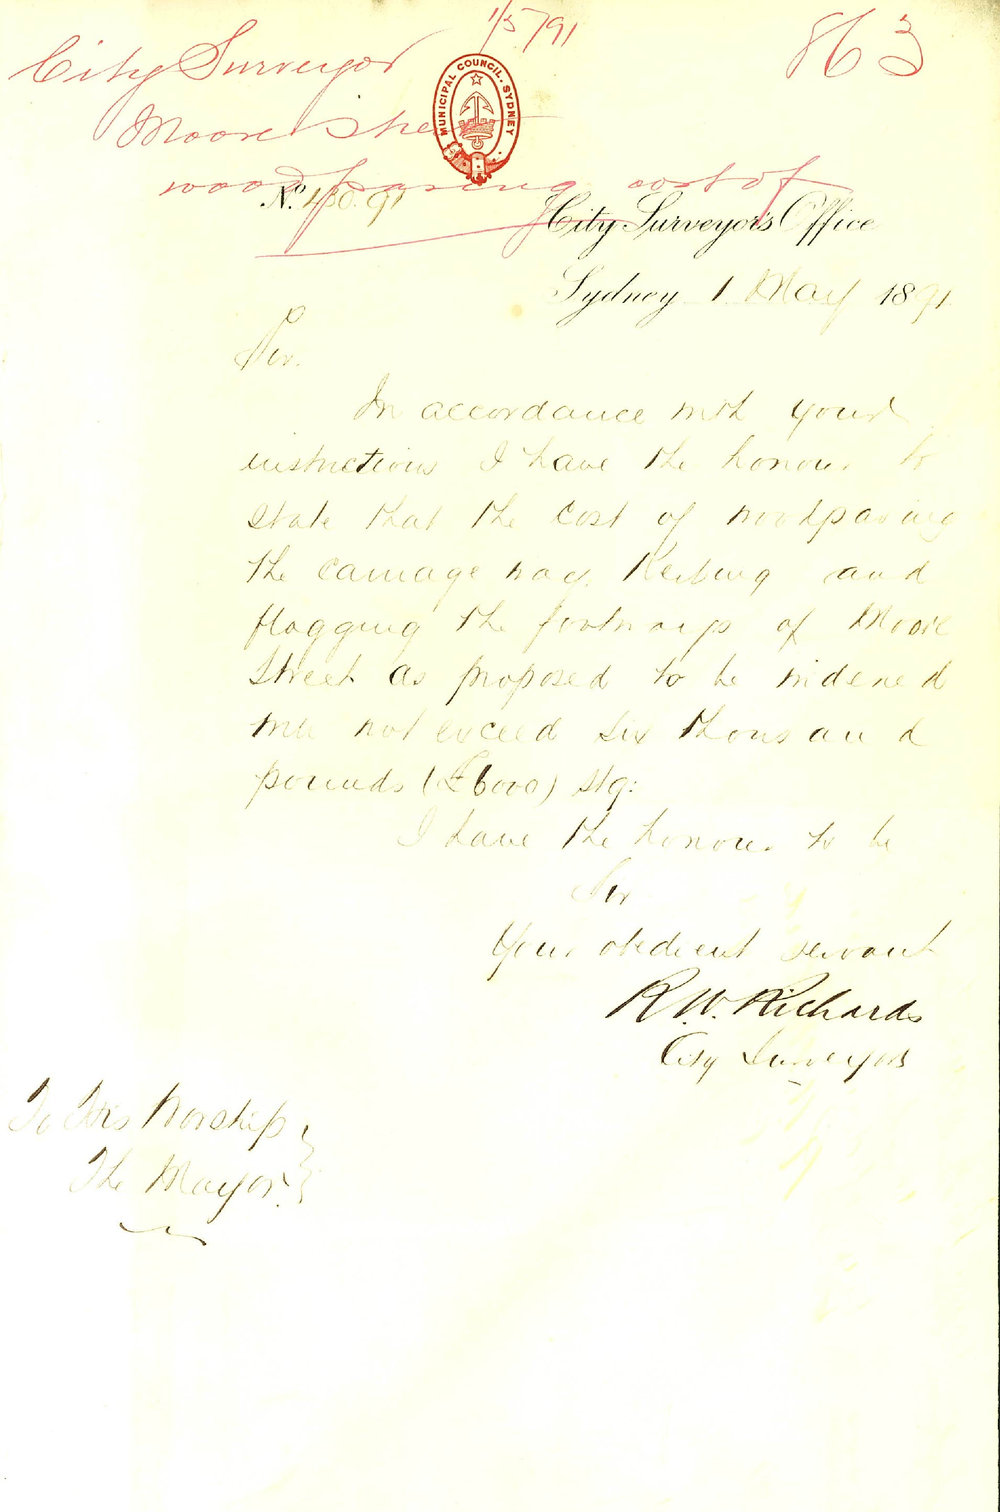 1/5/91
863
City Surveyor
Moore Street
woodpaving cost of
MUNICIPAL COUNCIL. SYDNEY
No. 430.91
City Surveyor's Office
Sydney 1 May 1891
Sir.
In accordance with your
instructions I have the honour to
state that the cost of woodpaving
the carriage way, Kerbing and
flagging the footways of Moore
Street as proposed to be widened
will not exceed six thousand
pounds (£6000) stg:
I have the honour to be
Sir
Your obedient servant
R.W. Richards
City Surveyor
To His Worship
The Mayor.